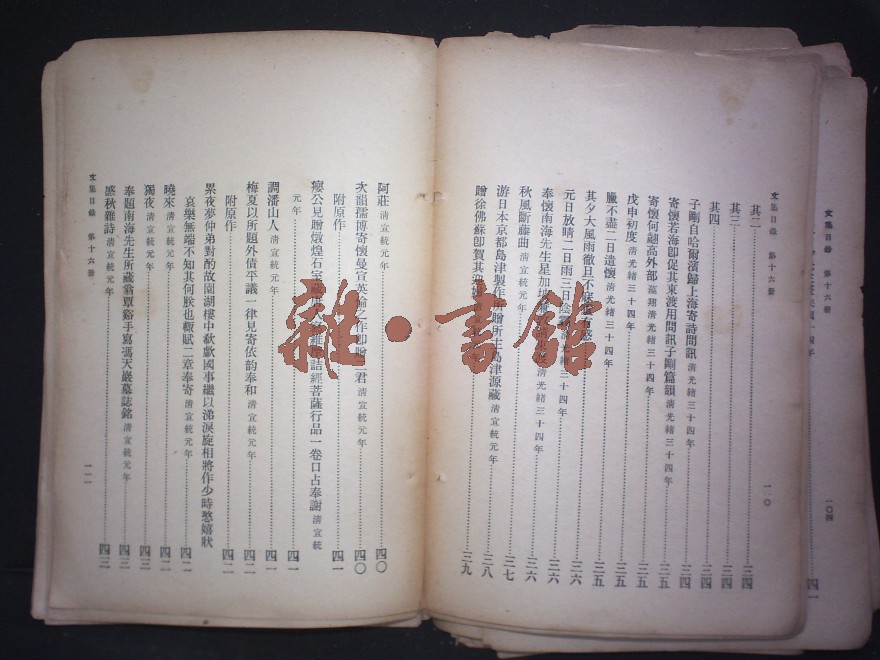 文集目錄 第十六册
一〇
其二……三四
其三……三四
其四……三四
子剛自哈爾濱歸上海寄詩問訊 清光緒三十四年……三四
寄懷若海卽促其東渡用問訊子剛篇韻 清光緒三十四年……三五
寄懷何翽高外部 藻翔 清光緒三十四年……三五
戊申初度 清光緒三十四年……三五
臘不盡二日遣懷 清光緒三十四年……三五
其夕大風雨徹旦不
元日放晴二日雨三日陰 清光緒三十四年……三六
奉懷南海先生星加坡 清光緒三十四年……三六
秋風斷藤曲 清宣統元年……三六
游日本京都島津製作所贈所主島津源藏 清宣統元年……三七
贈徐佛蘇卽賀其迎 三八
三九
阿莊 清宣統元年……四〇
次韻孺博寄懷曼宣英 之作卽贈二君 清宣統元年……四〇
附原作……四一
癭公見贈燉煌石室藏唐人 維摩詰經菩薩行品一卷口占奉謝 清宣統元年……四一
調潘山人 清宣統元年……四一
梅夏以所題外債平議一律見寄依韵奉和 清宣統元年……四二
附原作……四二
累夜夢仲弟對酌故園湖樓中欷歔國事繼以涕淚旋相將作少時憨嬉狀
哀樂無端不知其何朕也輒賦二章奉寄 清宣統元年……四二
曉來 清宣統元年……四三
獨夜 清宣統元年……四三
奉題南海先生所藏翁覃谿手寫馮天巖墓誌銘 清宣統元年……四三
感秋雜詩 清宣統元年……四三
文集目錄 第十六册
一一
文集目錄 第十六册
雜·書館